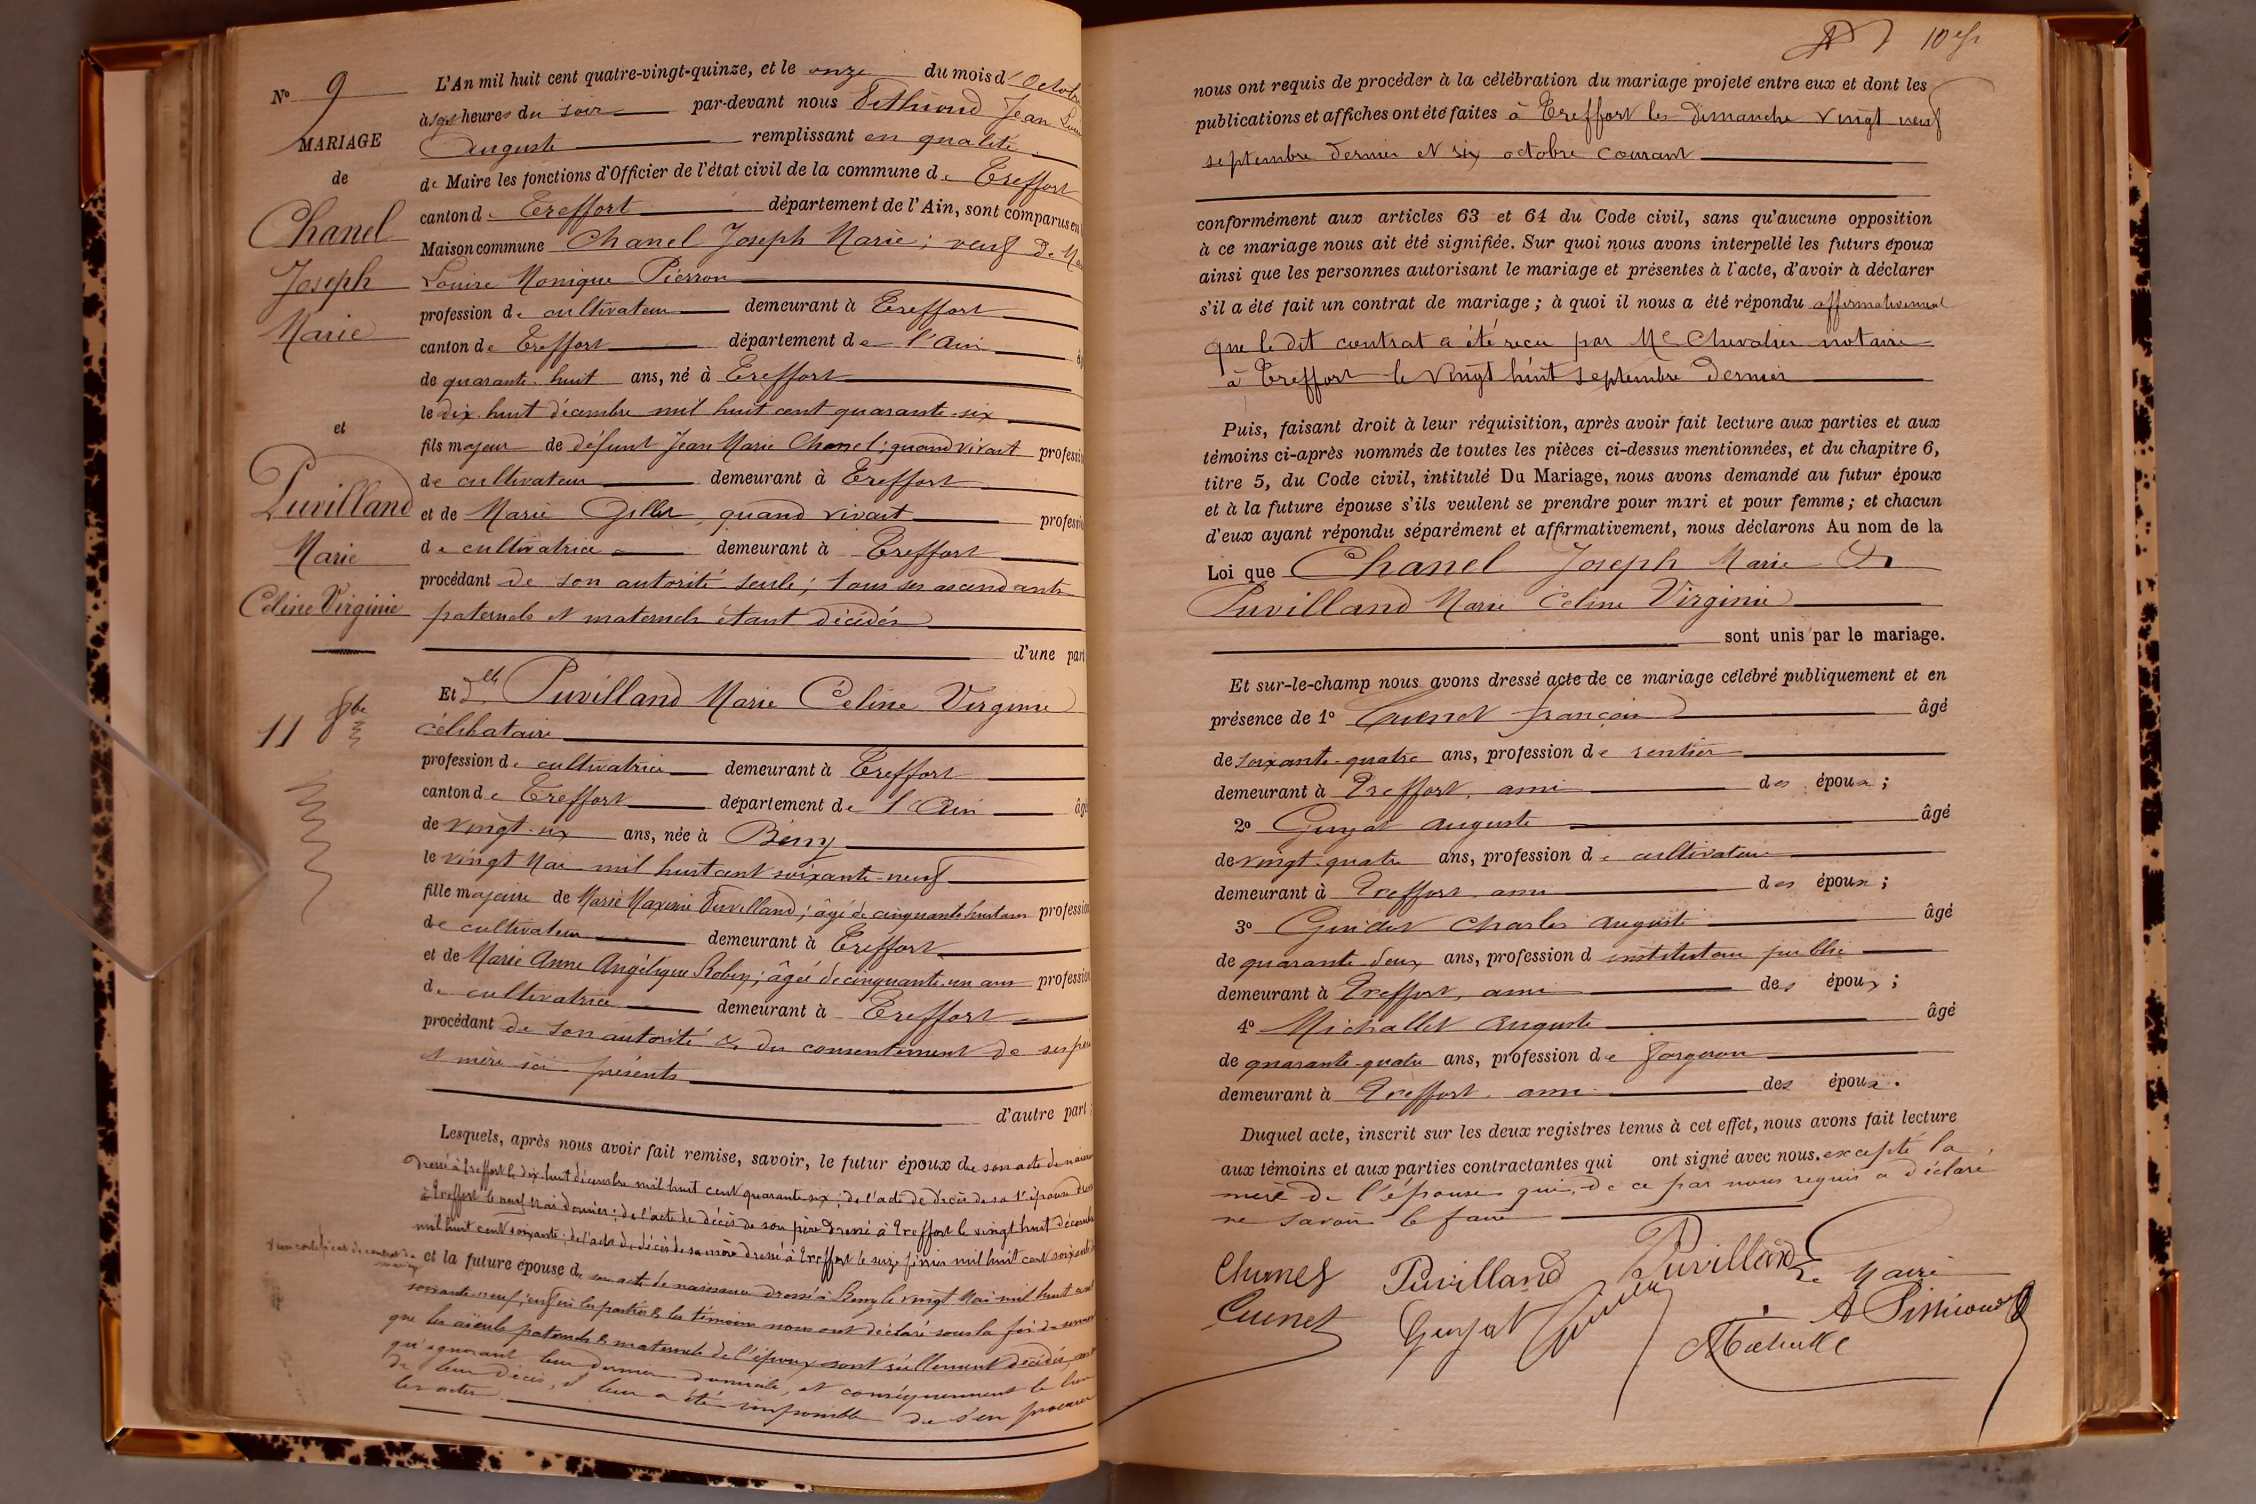 N° 9
MARIAGE
de
Chanel
Joseph
Marie
et
Puvilland
Marie
Céline Virginie
11 8bre
L'An mil huit cent quatre-vingt-quinze, et le onze du mois d'Octobre
à heures du soir par-devant nous Jean
Auguste remplissant en qualité
de Maire les fonctions d'Officier de l'état civil de la commune de Treffort
canton de Treffort département de l'Ain, sont comparus en
Maison commune Chanel Joseph Marie ; veuf de
Louise Monique Pierron
profession de cultivateur demeurant à Treffort
canton de Treffort département de l'Ain
de quarante-huit ans, né à Treffort
le dix-huit décembre mil huit cent quarante-six
fils majeur de défunt Jean Marie Chanel ; quand vivait profession
de cultivateur demeurant à Treffort
et de Marie quand vivait profession
de cultivatrice demeurant à Treffort
procédant de son autorité seule ; tous ses ascendants
paternels et maternels étant décédés
d'une part
Et Dlle Puvilland Marie Céline Virginie
célibataire
profession de cultivatrice demeurant à Treffort
canton de Treffort département de l'Ain âgé
de vingt-six ans, née à Bény
le vingt Mai mil huit cent soixante-neuf
fille majeure de Marie Maxime Puvilland ; âgé de cinquante huit ans profession
de cultivateur demeurant à Treffort
et de Marie Anne Angélique Robin ; âgée de cinquante un ans profession
de cultivatrice demeurant à Treffort
procédant de son autorité & du consentement de ses père
et mère ici présents
d'autre part ;
Lesquels, après nous avoir fait remise, savoir, le futur époux de son acte de naissance
dressé à Treffort le dix-huit décembre mil huit cent quarante-six ; de l'acte de décès de sa 1e épouse dressé
à Treffort le neuf Mai dernier ; de l'acte de décès de son père dressé à Treffort le vingt huit décembre
mil huit cent soixante ; de l'acte de décès de sa mère dressé à Treffort le seize février mil huit cent soixante
& un certificat de contrat de mariage
et la future épouse de son acte de naissance dressé à Bény le vingt Mai mil huit cent
soixante neuf ; enfin les parties & les témoins nous ont déclaré sous la foi du serment
que les aïeuls paternels & maternels de l'époux sont réellement décédés,
qu'ignorant leur dernier domicile, et conséquemment le lieu
de leur décès, il leur a été impossible de s'en procurer
les actes
10
nous ont requis de procéder à la célébration du mariage projeté entre eux et dont les
publications et affiches ont été faites à Treffort les dimanche vingt neuf
septembre dernier et six octobre courant
conformément aux articles 63 et 64 du Code civil, sans qu'aucune opposition
à ce mariage nous ait été signifiée. Sur quoi nous avons interpellé les futurs époux
ainsi que les personnes autorisant le mariage et présentes à l'acte, d'avoir à déclarer
s'il a été fait un contrat de mariage ; à quoi il nous a été répondu affirmativement
que le dit contrat a été reçu par Me Chevalier notaire
à Treffort le vingt huit septembre dernier
Puis, faisant droit à leur réquisition, après avoir fait lecture aux parties et aux
témoins ci-après nommés de toutes les pièces ci-dessus mentionnées, et du chapitre 6,
titre 5, du Code civil, intitulé Du Mariage, nous avons demandé au futur époux
et à la future épouse s'ils veulent se prendre pour mari et pour femme ; et chacun
d'eux ayant répondu séparément et affirmativement, nous déclarons Au nom de la
Loi que Chanel Joseph Marie &
Puvilland Marie Céline Virginie
sont unis par le mariage.
Et sur-le-champ nous avons dressé acte de ce mariage célébré publiquement et en
présence de 1° Cuenet françois âgé
de soixante-quatre ans, profession de rentier
demeurant à Treffort, ami des époux ;
2° Guyot auguste âgé
de vingt-quatre ans, profession de cultivateur
demeurant à Treffort ami des époux ;
3° Charles auguste âgé
de quarante deux ans, profession d instituteur public
demeurant à Treffort, ami des époux ;
4° Michallet auguste âgé
de quarante-quatre ans, profession de forgeron
demeurant à Treffort ami des époux.
Duquel acte, inscrit sur les deux registres tenus à cet effet, nous avons fait lecture
aux témoins et aux parties contractantes qui ont signé avec nous. excepté la
mère de l'épouse qui, de ce par nous requis a déclaré
ne savoir le faire
Puvilland Puvilland Le Maire
Cuenet Guyot